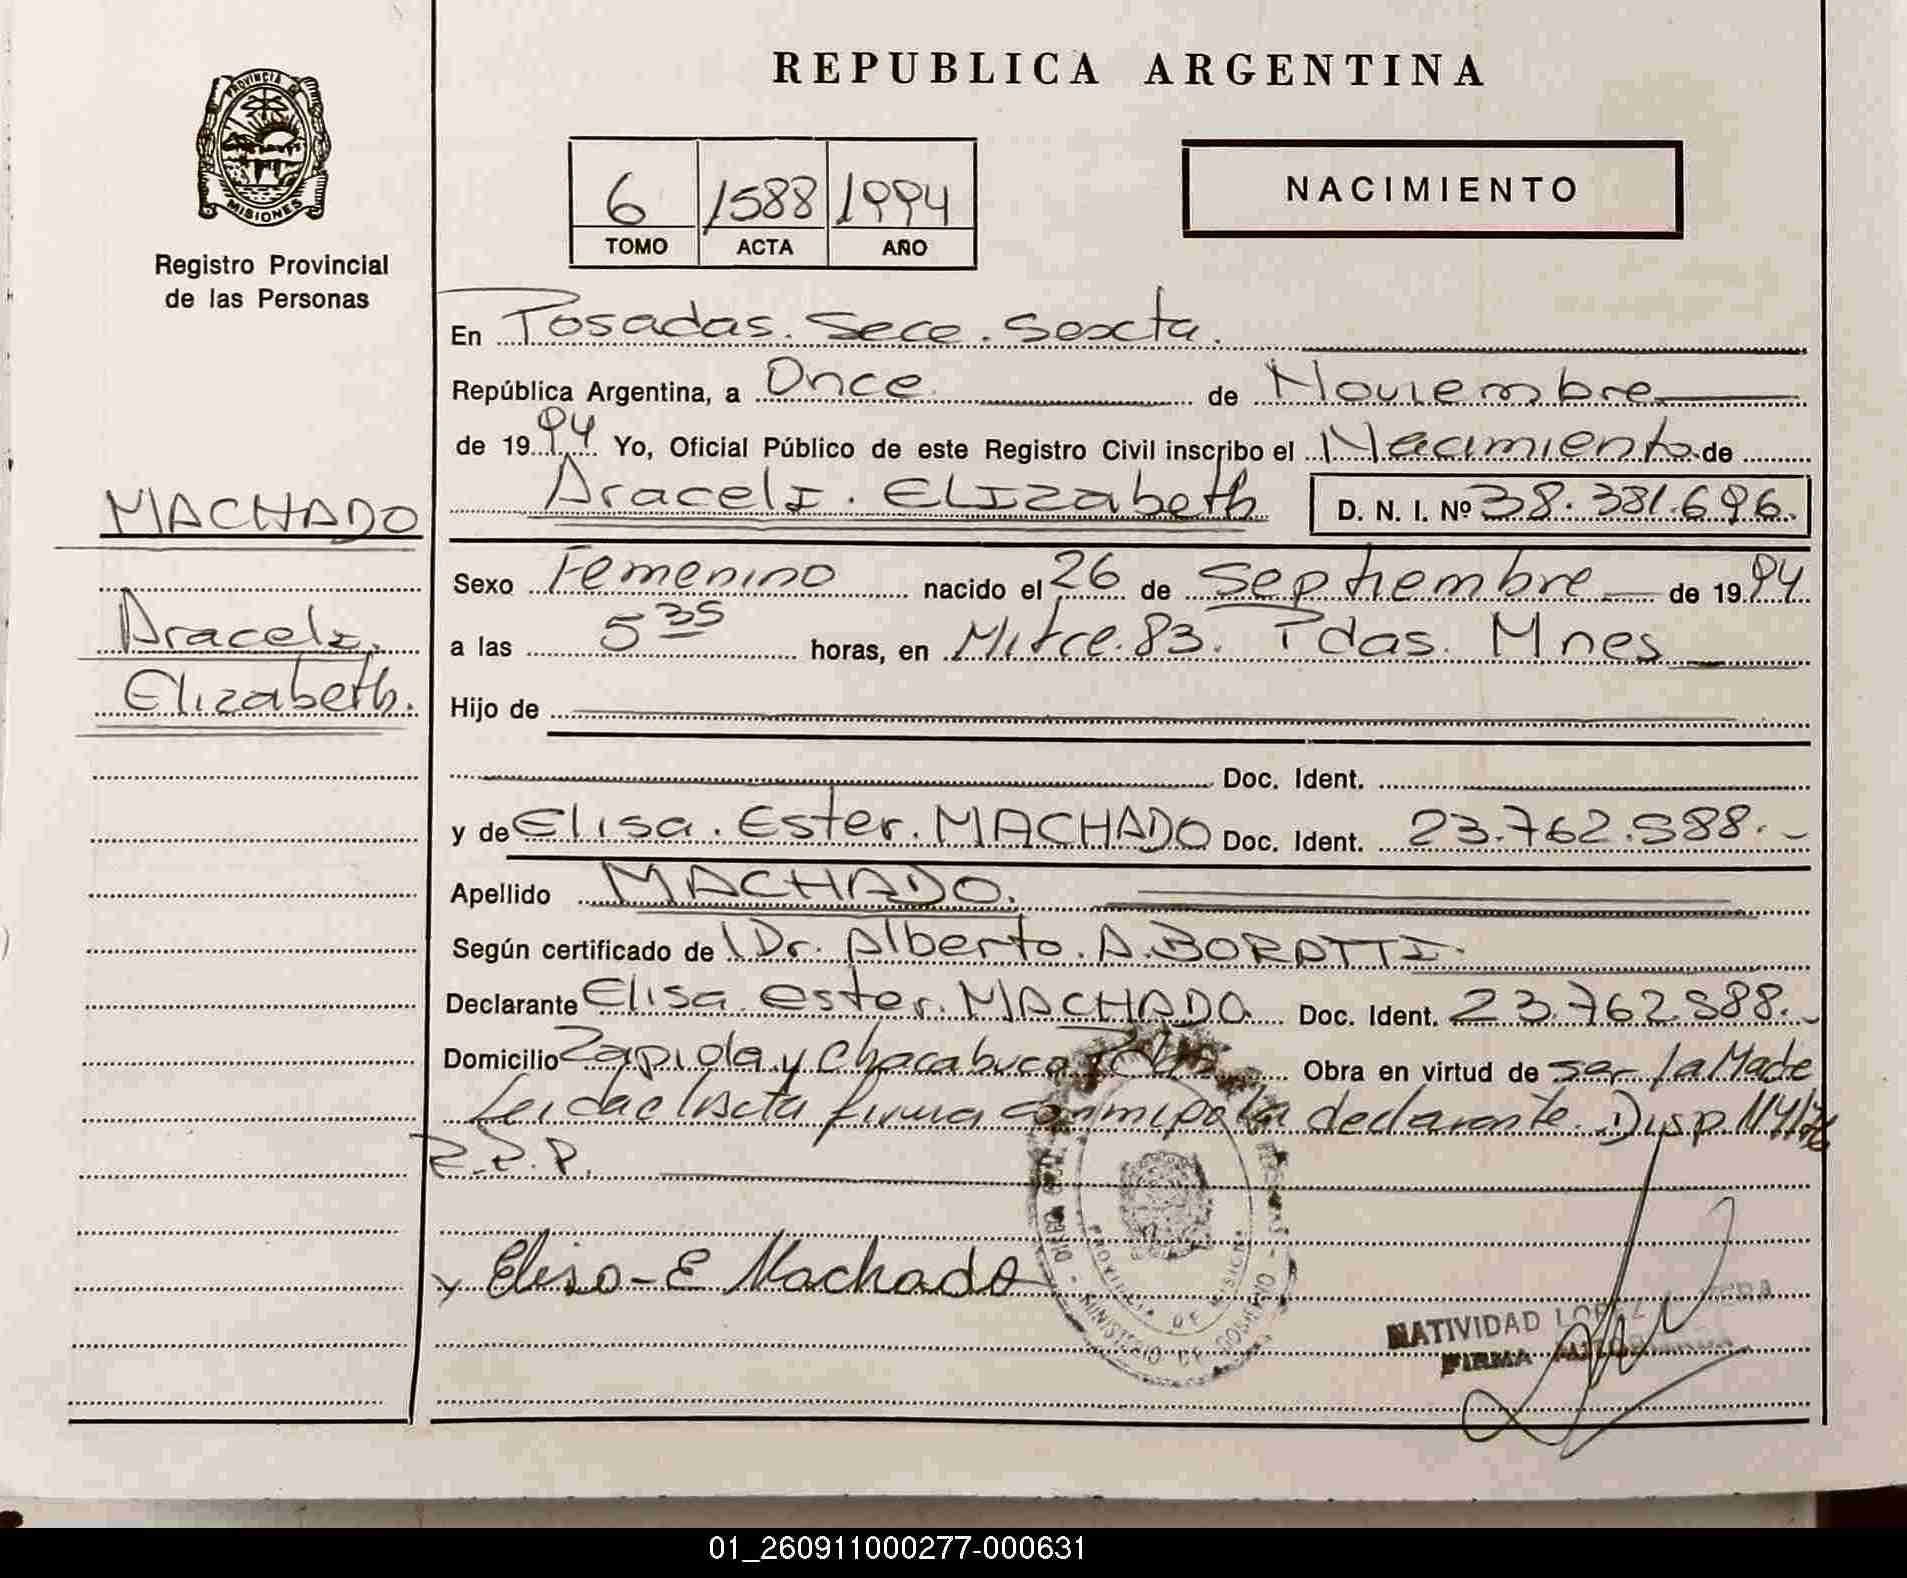 REPUBLICA ARGENTINA
PROVINCIA DE
MISIONES
Registro Provincial
de las Personas
6 1588 1994
TOMO ACTA AÑO
NACIMIENTO
En Posadas. Secc. Sexta.
República Argentina, a Once de Noviembre
de 1994 Yo, Oficial Público de este Registro Civil inscribo el Nacimiento de
Araceli. ELIzabeth D. N. I. Nº 38.381.696.
MACHADO
Araceli.
Elizabeth.
Sexo Femenino nacido el 26 de Septiembre de 1994
a las 5 35 horas, en Mitre.83. Pdas. Mnes
Hijo de
Doc. Ident.
y de Elisa. Ester. MACHADO Doc. Ident. 23.762.588.-
Apellido MACHADO.
Según certificado de Dr. Alberto. A. BORATTI.
Declarante Elisa. Ester. MACHADO Doc. Ident. 23.762.588.-
Domicilio Zapiola y Chacabuco Obra en virtud de ser la Madre
Leida el Acta firma conmigo la declarante. Disp 114/76
R.P.P.
Elisa-E Machado
PROVINCIA DE MISIONES
MINISTERIO DE GOBIERNO
NATIVIDAD LOPEZ
FIRMA AUTORIZADA
01_260911000277-000631